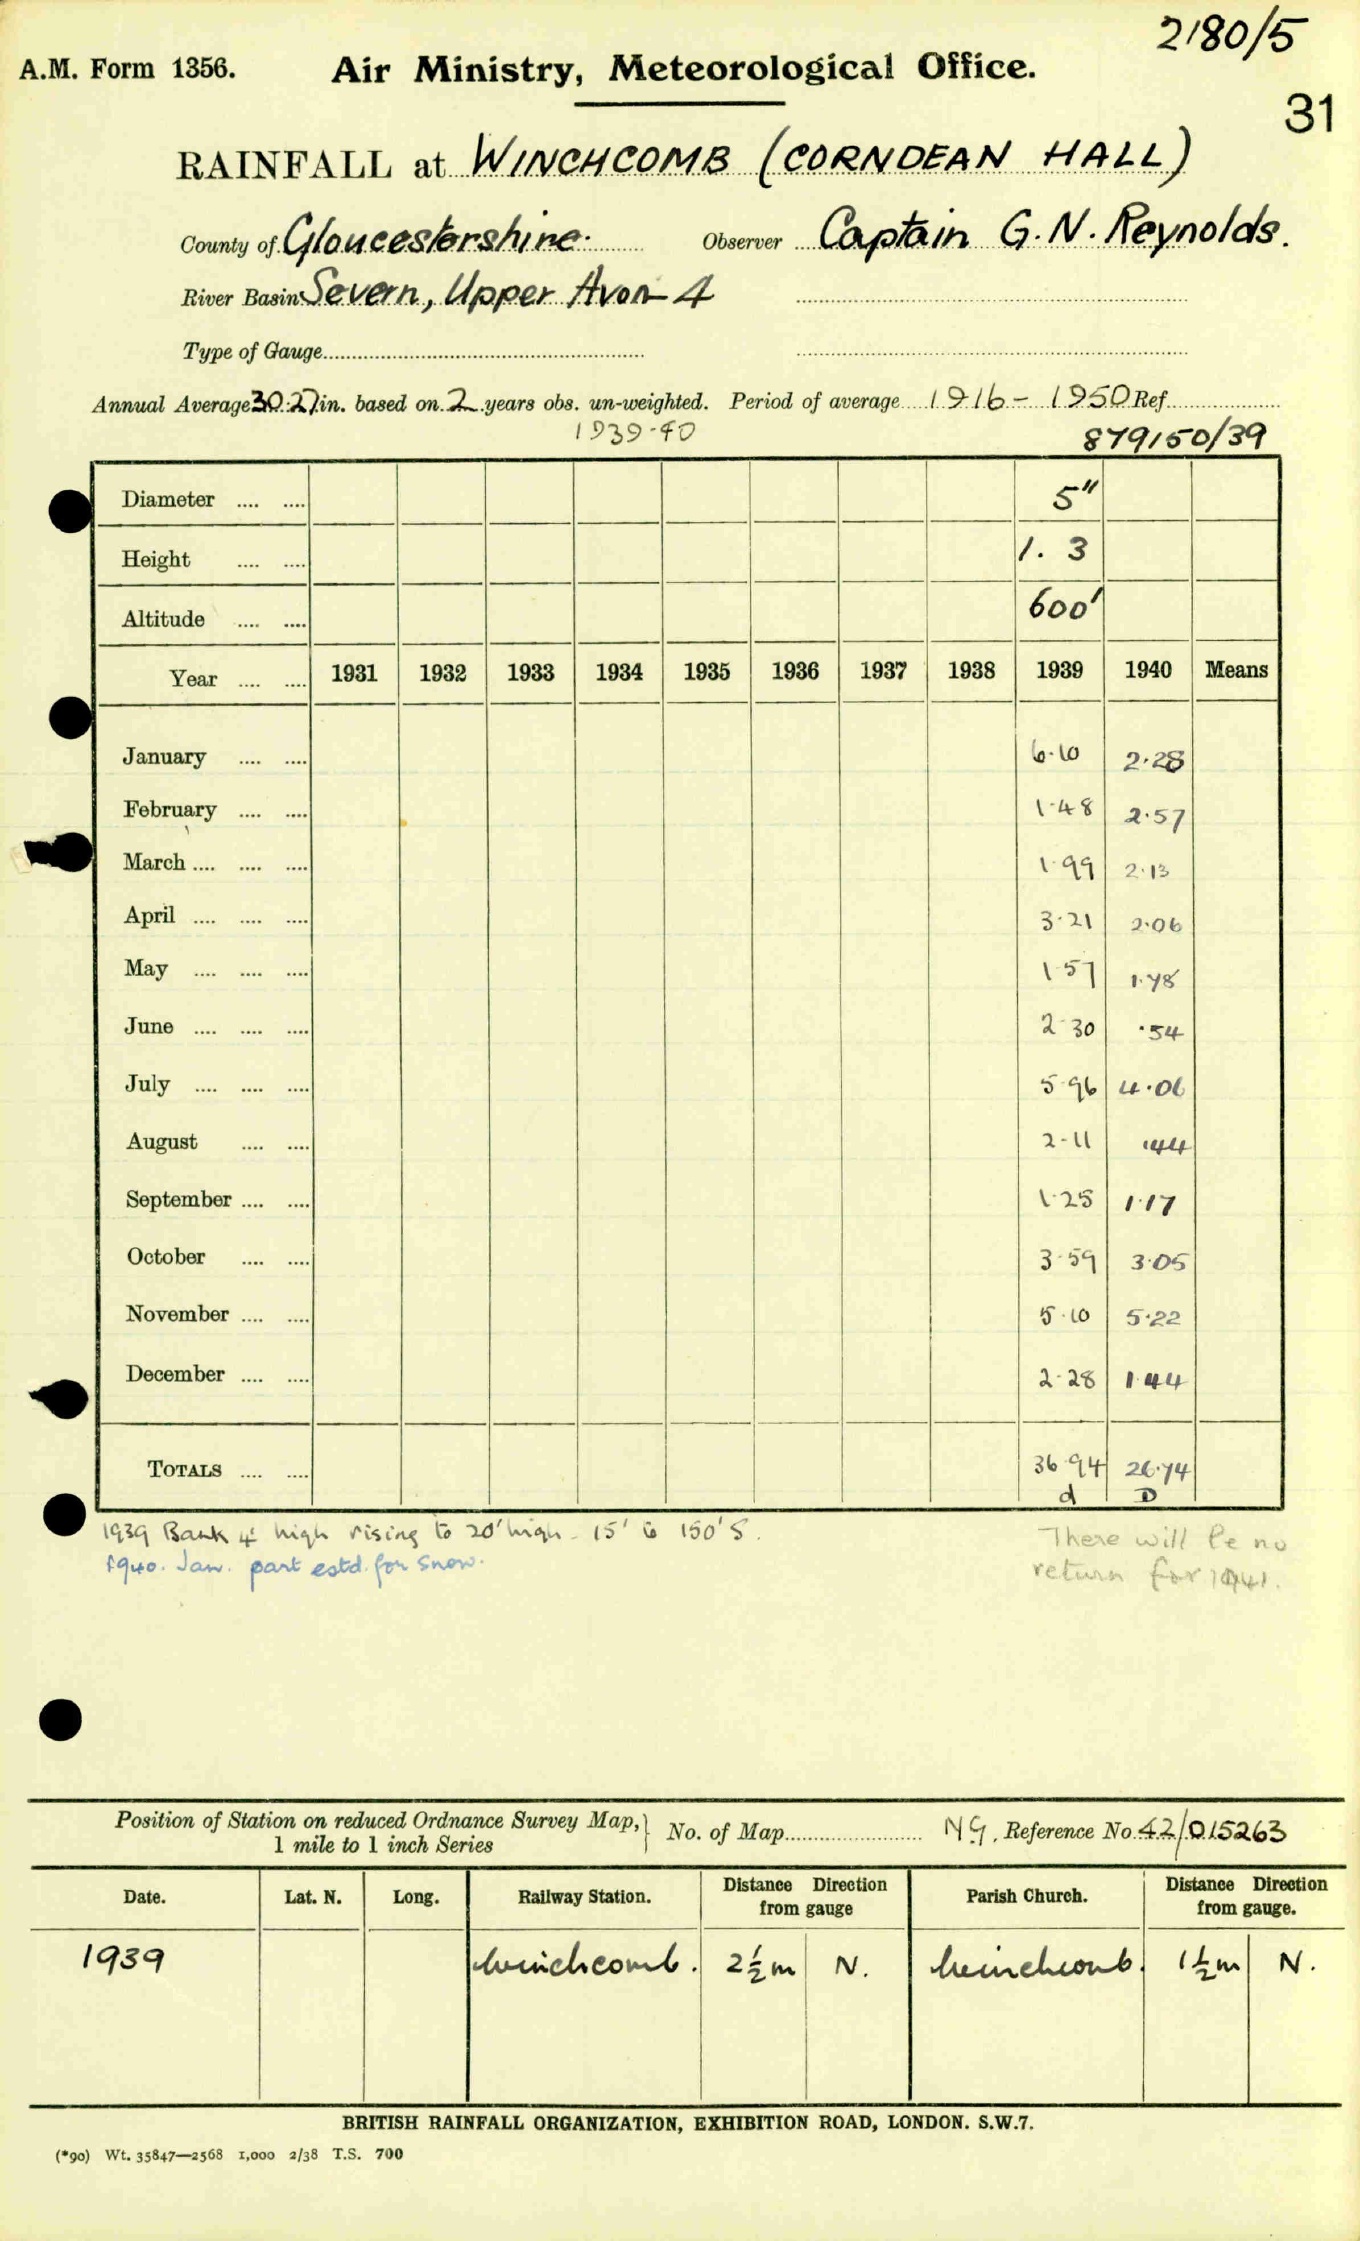 2180/5
A.M. Form 1356. Air Ministry, Meteorological Office.
31
RAINFALL at WINCHCOMB (CORNDEAN HALL)
County of Gloucestershire. Observer Captain G. N. Reynolds.
River Basin Severn, Upper Avon 4
Type of Gauge
Annual Average 30.27 in. based on 2 years obs. un-weighted. Period of average 1916 - 1950 Ref.
1939-40 879150/39
Diameter .... .... 5"
Height .... .... 1. 3
Altitude .... .... 600'
Year .... .... 1931 1932 1933 1934 1935 1936 1937 1938 1939 1940 Means
January .... .... 6.10 2.28
February .... .... 1.48 2.57
March .... .... .... 1.99 2.13
April .... .... .... 3.21 2.06
May .... .... .... 1.57 1.78
June .... .... .... 2.30 .54
July .... .... .... 5.96 4.06
August .... .... 2.11 .44
September .... .... 1.25 1.17
October .... .... 3.59 3.05
November .... .... 5.10 5.22
December .... .... 2.28 1.44
TOTALS .... .... 36.94 26.74
d D
1939 Bank 4' high rising to 20' high - 15' to 150' S.
1940. Jan. part estd. for snow.
There will be no
return for 1941.
Position of Station on reduced Ordnance Survey Map, 1 mile to 1 inch Series } No. of Map N.G. Reference No. 42/015263
Date. Lat. N. Long. Railway Station. Distance Direction from gauge Parish Church. Distance Direction from gauge.
1939 Winchcomb. 2½ m N. Winchcomb. 1½ m N.
BRITISH RAINFALL ORGANIZATION, EXHIBITION ROAD, LONDON. S.W.7.
(*90) Wt. 35847—2568 1,000 2/38 T.S. 700